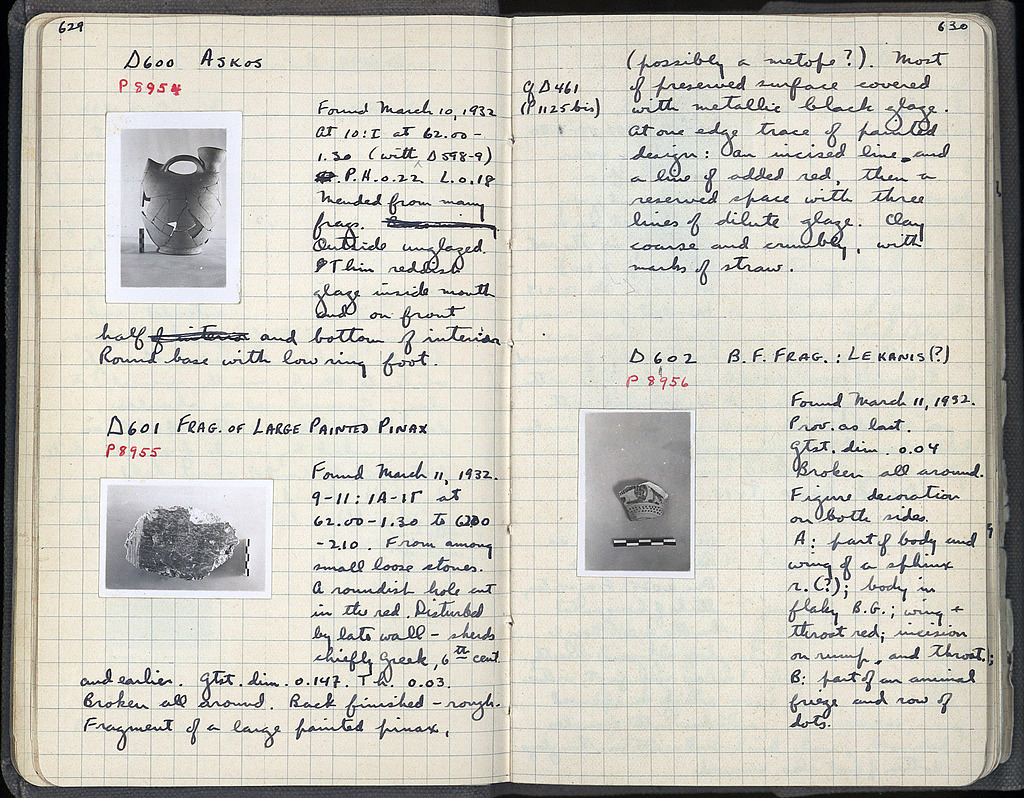 629
D600 ASKOS
P 8954
Found March 10, 1932
At 10:I at 62.00-
1.30 (with D598-9)
P.H. 0.22 L. 0.18
Mended from many
frags.
Outside unglazed.
Thin reddish
glaze inside mouth
and on front
half and bottom of interior
Round base with low ring foot.
D601 FRAG. OF LARGE PAINTED PINAX
P8955
Found March 11, 1932.
9-11: IA-IΓ at
62.00-1.30 to 6200
-2.10. From among
small loose stones.
A roundish hole cut
in the red. Disturbed
by late wall - sherds
chiefly Greek, 6th cent.
and earlier. Gtst. dim. 0.147. Th. 0.03.
Broken all around. Back finished - rough.
Fragment of a large painted pinax,
630
(possibly a metope?). Most
of preserved surface covered
cf D461
(P1125 bis)
with metallic black glaze.
At one edge trace of painted
design: an incised line, and
a line of added red, then a
reserved space with three
lines of dilute glaze. Clay
coarse and crumbly, with
marks of straw.
D602 B.F. FRAG.: LEKANIS(?)
P 8956
Found March 11, 1932.
Prov. as last.
Gtst. dim. 0.04
Broken all around.
Figure decoration
on both sides.
A: part of body and
wing of a sphinx
r.(?); body in
flaky B.G.; wing +
throat red; incision
on rump, and throat.);
B: part of an animal
frieze and row of
dots.